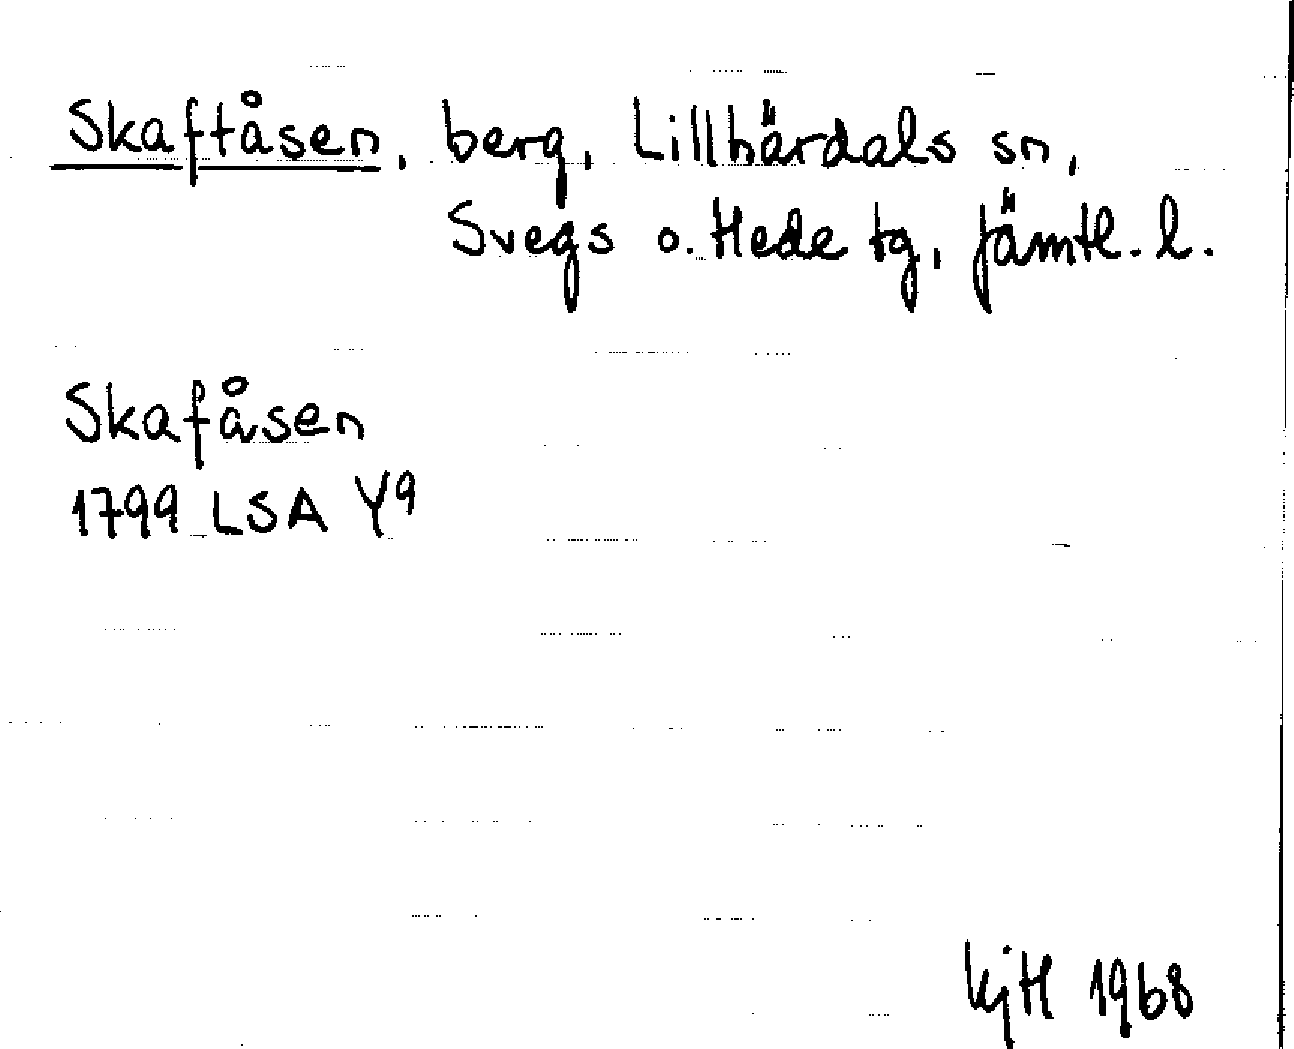 Skaftåsen, berg, Lillhärdals sn,
Svegs o. Hede tg, Jämtl. l.
Skafåsen
1799 LSA Y9
KjH 1968